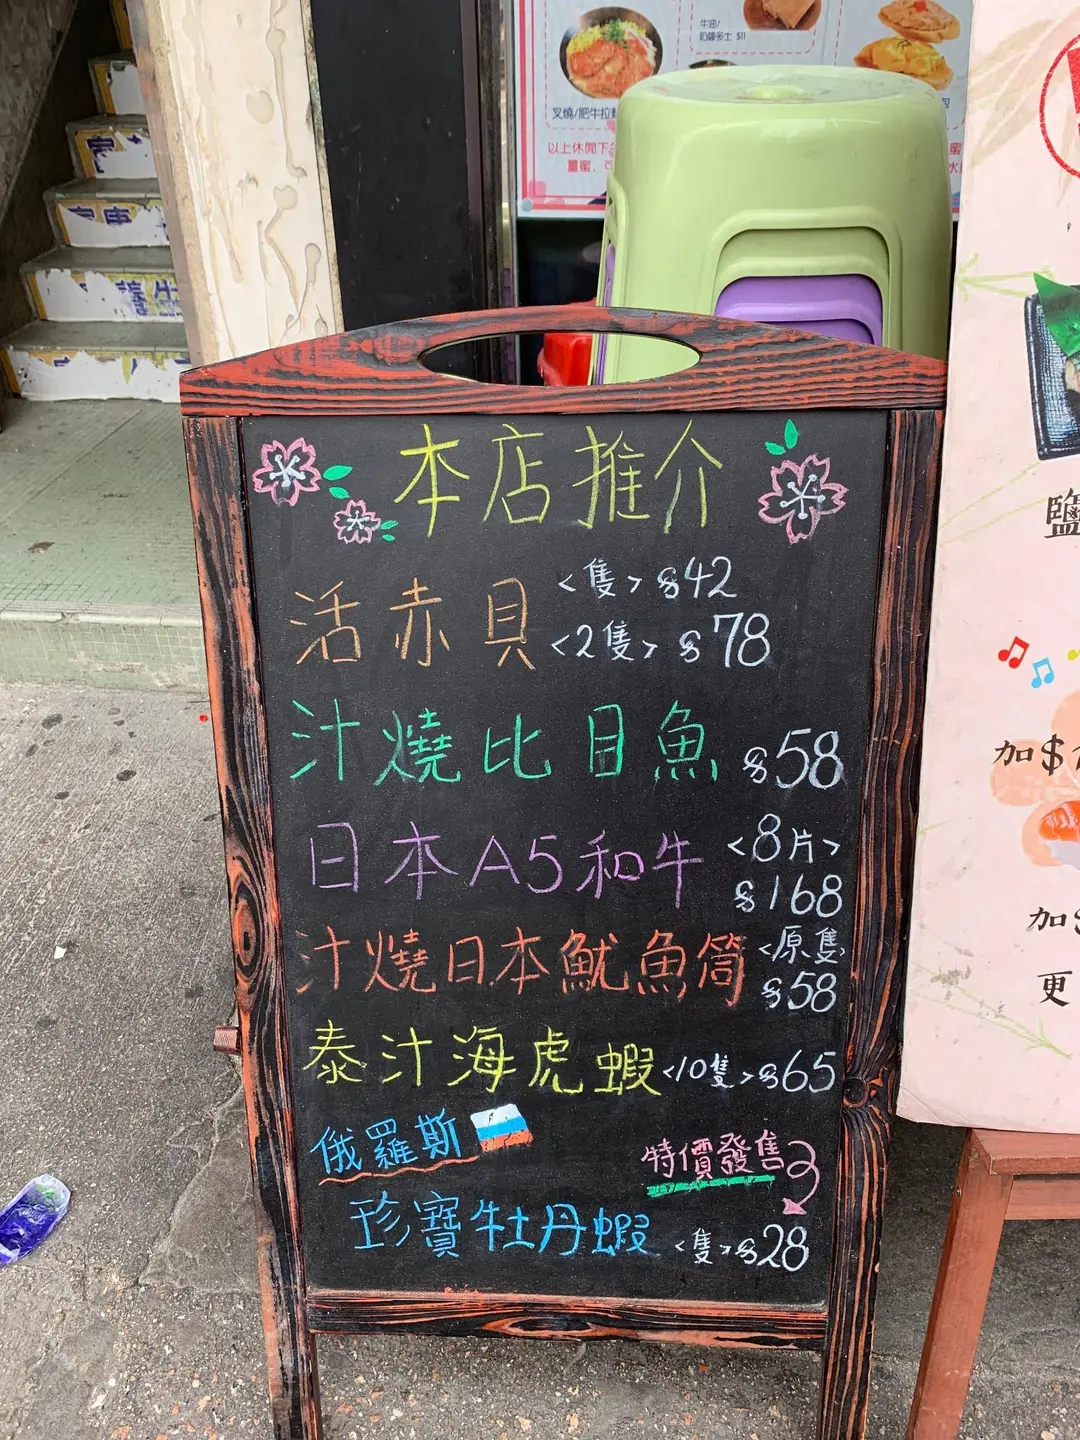 牛油/
奶醬多士 $11
叉燒/肥牛拉麵
以上休閒下
薑蜜.
本店推介
活赤貝 <隻> $42
<2隻> $78
汁燒比目魚 $58
日本A5和牛 <8片>
$168
汁燒日本魷魚筒 <原隻>
$58
泰汁海虎蝦 <10隻> $65
俄羅斯
特價發售
珍寶牡丹蝦 <隻> $28
鹽
加$
加$
更